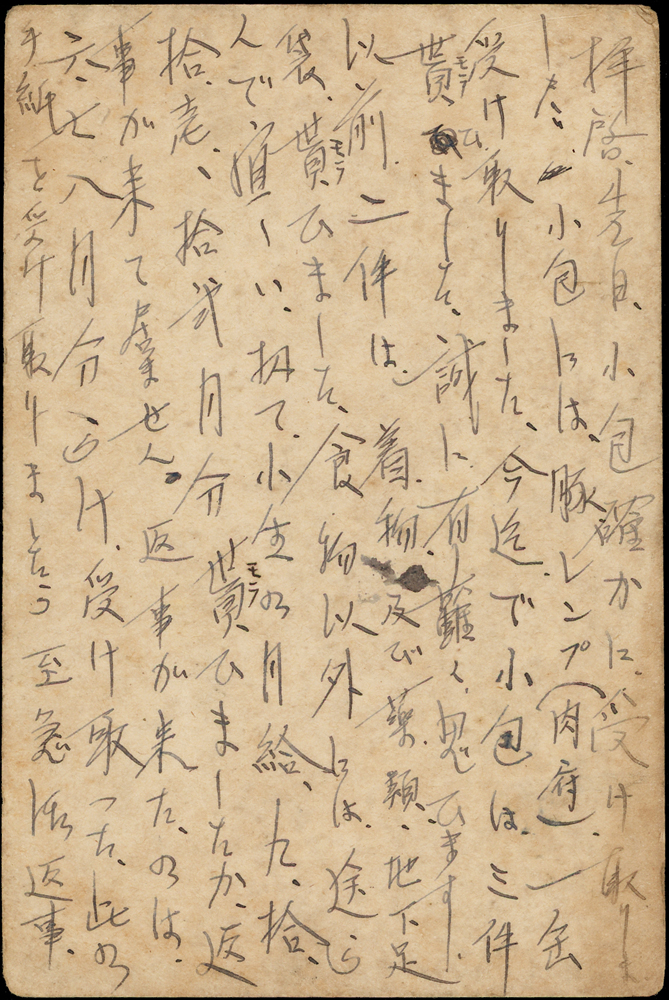 拝啓、先日、小包確かに受け取りま
した。小包には、豚レンプ(肉府)、一缶
受け取りました、今迄で小包は三件
貰ひました、誠に有り難く思ひます。
モラ
以前二件は、着物、及び薬類、地下足
袋、貰ひました、食物以外には、送ら
モラ
んで宜しい、扨て、小生の月給、九、拾、
拾壱、拾弐月分貰ひましたか、返
モラ
事が来て居ません。返事が来た、のは、
六七八月分だけ、受け取った、此の
手紙を受け取りましたら至急御返事、